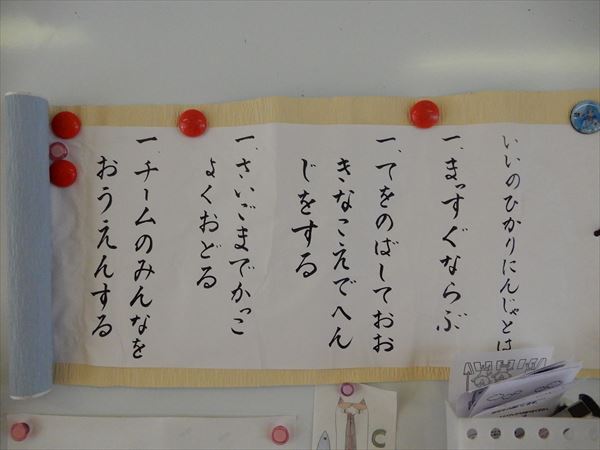 いいのひかりにんじゃとは
一、まっすぐならぶ
一、てをのばしておお
きなこえでへん
じをする
一、さいごまでかっこ
よくおどる
一、チームのみんなを
おうえんする